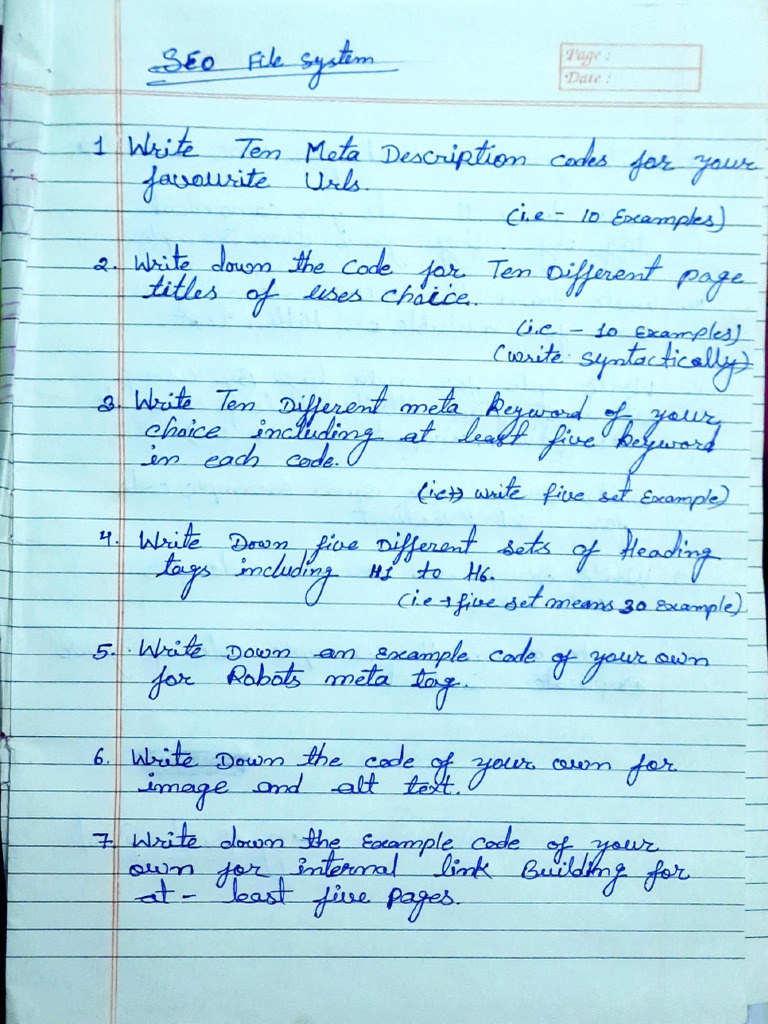 SEO File System
Page :
Date :
1 Write Ten Meta Description codes for your
favourite Urls.
(i.e - 10 Examples)
2. Write down the code for Ten Different page
titles of uses choice.
(i.e - 10 Examples)
(write syntactically)
3. Write Ten Different meta keyword of your
choice including at least five keyword
in each code.
write five set Example)
4. Write Down five Different sets of Heading
tags including H1 to H6.
(i.e → five set means 30 Example)
5. Write Down an Example code of your own
for Robots meta tag.
6. Write Down the code of your own for
image and alt text.
7. Write down the Example code of your
own for internal link Building for
at - least five pages.